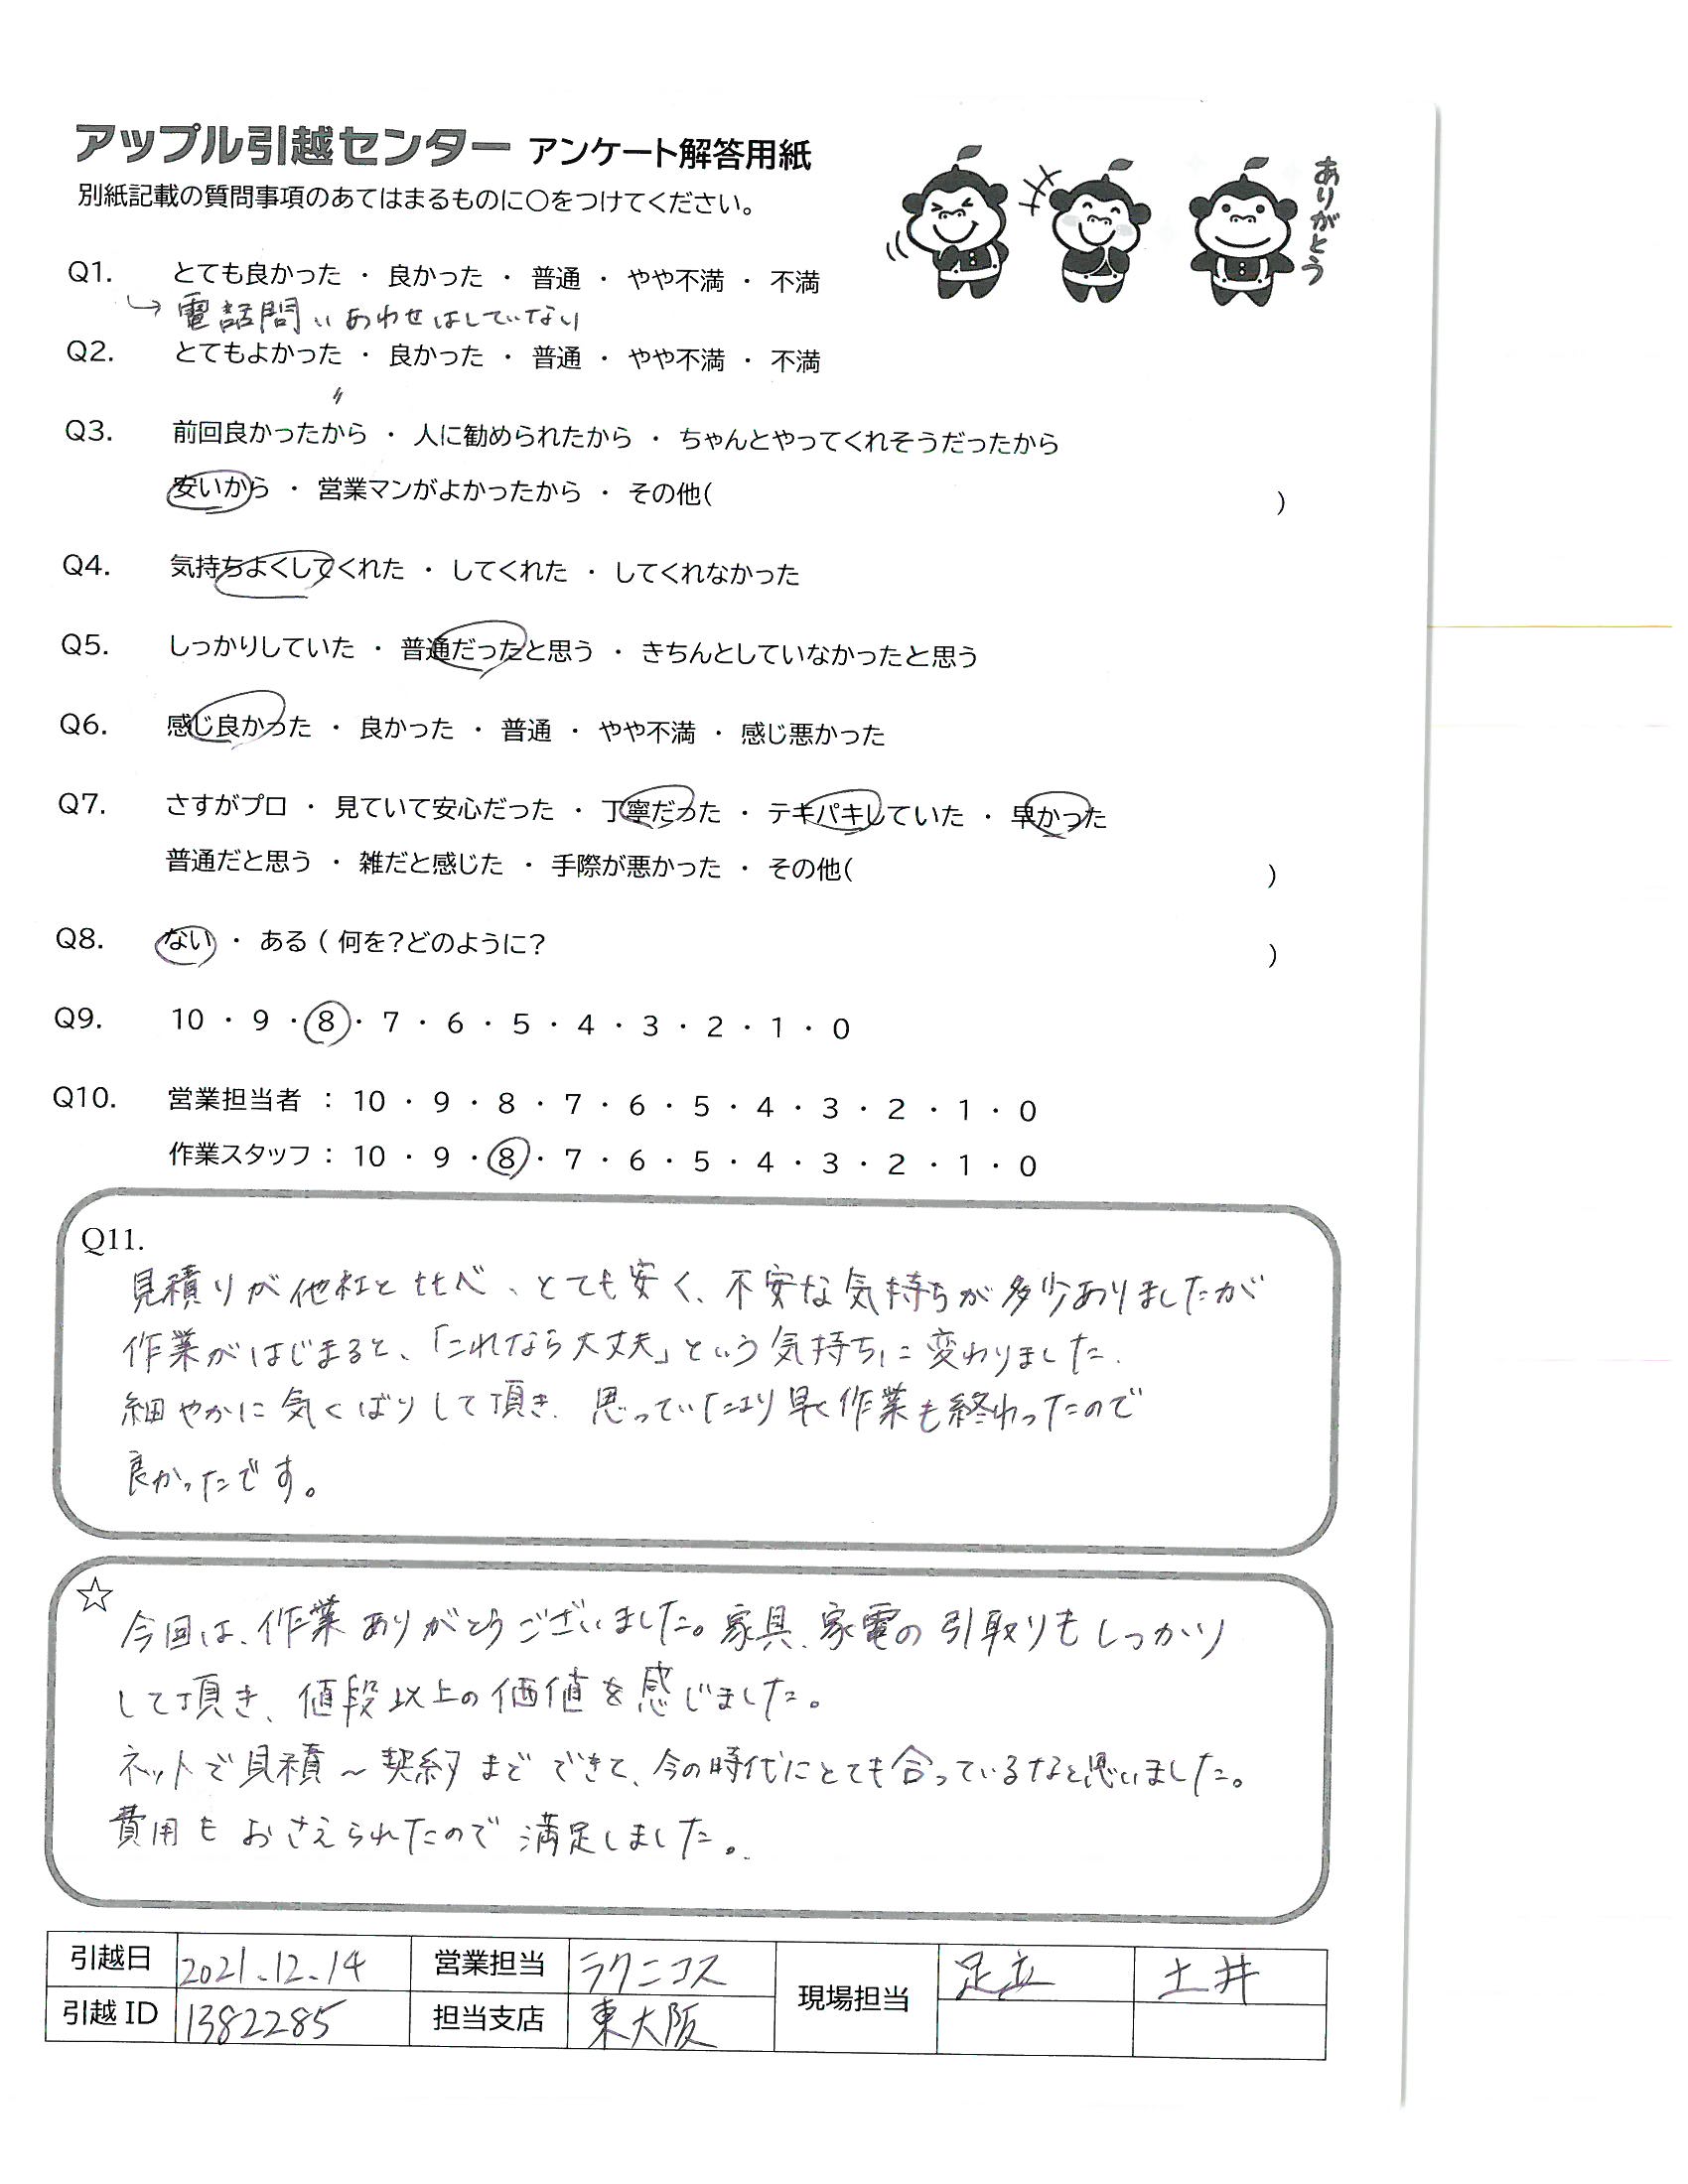 アップル引越センター アンケート解答用紙
別紙記載の質問事項のあてはまるものに○をつけてください。
ありがとう
Q1. とても良かった ・ 良かった ・ 普通 ・ やや不満 ・ 不満
↳ 電話問いあわせはしていない
Q2. とてもよかった ・ 良かった ・ 普通 ・ やや不満 ・ 不満
〃
Q3. 前回良かったから ・ 人に勧められたから ・ ちゃんとやってくれそうだったから
安いから ・ 営業マンがよかったから ・ その他( )
Q4. 気持ちよくしてくれた ・ してくれた ・ してくれなかった
Q5. しっかりしていた ・ 普通だったと思う ・ きちんとしていなかったと思う
Q6. 感じ良かった ・ 良かった ・ 普通 ・ やや不満 ・ 感じ悪かった
Q7. さすがプロ ・ 見ていて安心だった ・ 丁寧だった ・ テキパキしていた ・ 早かった
普通だと思う ・ 雑だと感じた ・ 手際が悪かった ・ その他( )
Q8. ない ・ ある ( 何を?どのように? )
Q9. 10 ・ 9 ・ 8 ・ 7 ・ 6 ・ 5 ・ 4 ・ 3 ・ 2 ・ 1 ・ 0
Q10. 営業担当者 : 10 ・ 9 ・ 8 ・ 7 ・ 6 ・ 5 ・ 4 ・ 3 ・ 2 ・ 1 ・ 0
作業スタッフ : 10 ・ 9 ・ 8 ・ 7 ・ 6 ・ 5 ・ 4 ・ 3 ・ 2 ・ 1 ・ 0
Q11.
見積りが他社と比べ、とても安く、不安な気持ちが多少ありましたが
作業がはじまると、「これなら大丈夫」という気持ちに変わりました.
細やかに気くばりして頂き、思っていたより早く作業も終わったので
良かったです。
☆
今回は、作業ありがとうございました。家具、家電の引取りもしっかり
して頂き、値段以上の価値を感じました。
ネットで見積～契約までできて、今の時代にとても合っているなと思いました。
費用もおさえられたので満足しました。
引越日 2021.12.14 営業担当 ラクニコス 現場担当 足立 土井
引越 ID 1382285 担当支店 東大阪